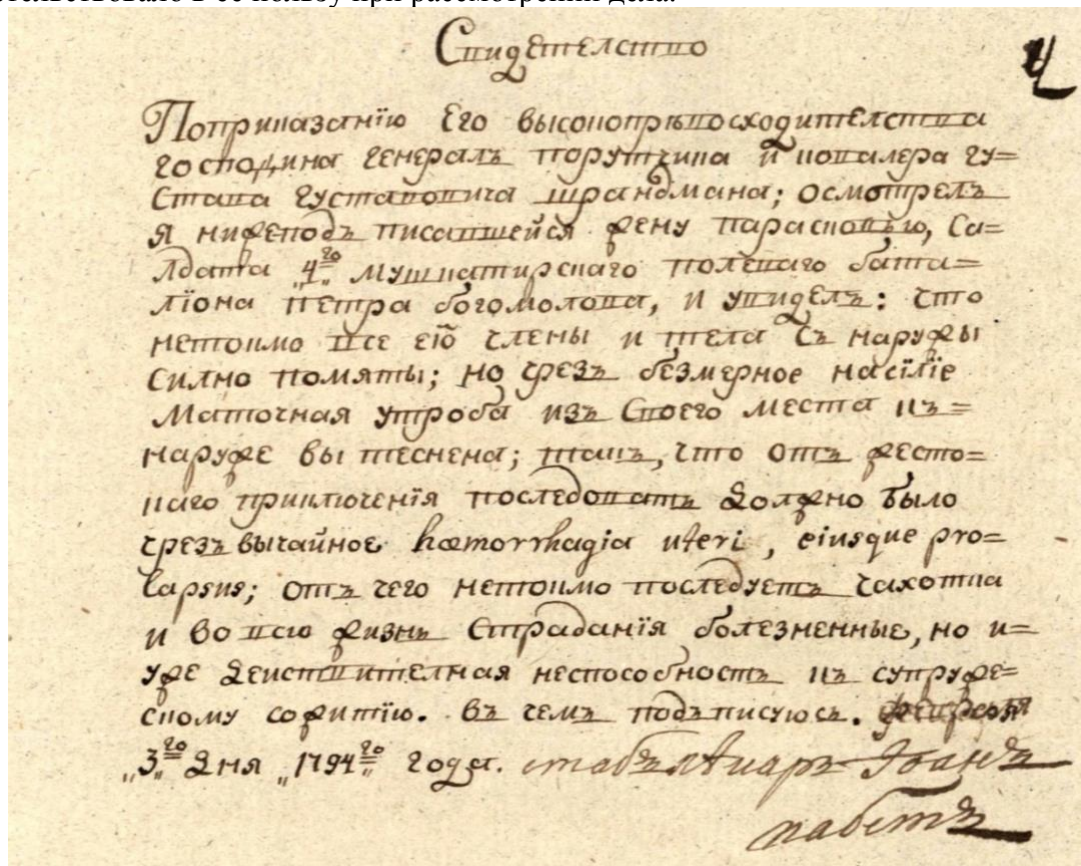 тельствовало в ее пользу при рассмотрении дела.
Свидетелство
4
Поприказанїю Его высокопрѣвосходителства
господина генералъ порутчика и кавалера гу=
става густавовича штрандмана; осмотрелъ
я нижеподъ писавшейся жену парасковѣю, Са=
лдата „4го„ мушкатирскаго полеваго бата=
лїона петра богомолова, и увиделъ: что
нетокмо все ею члены и тела съ наружы
силно помяты; но чрезъ безмерное насїлїе
Маточная утроба изъ своего места къ=
наруже вытеснена; такъ, что отъ жесто=
каго приключенїя последовать должно было
чрезъвычайное hæmorrhagia uteri, eiusque pro=
lapsus; отъ чего нетокмо последуетъ чахотка
и во всю жизнь страданїя болезненные, но и=
уже деиствителная неспособность къ супруже=
скому сожитїю. Въ чемъ подъписуюсь. февраля
„3го„ дня „1794го„ года. штабълѣкаръ Иванъ